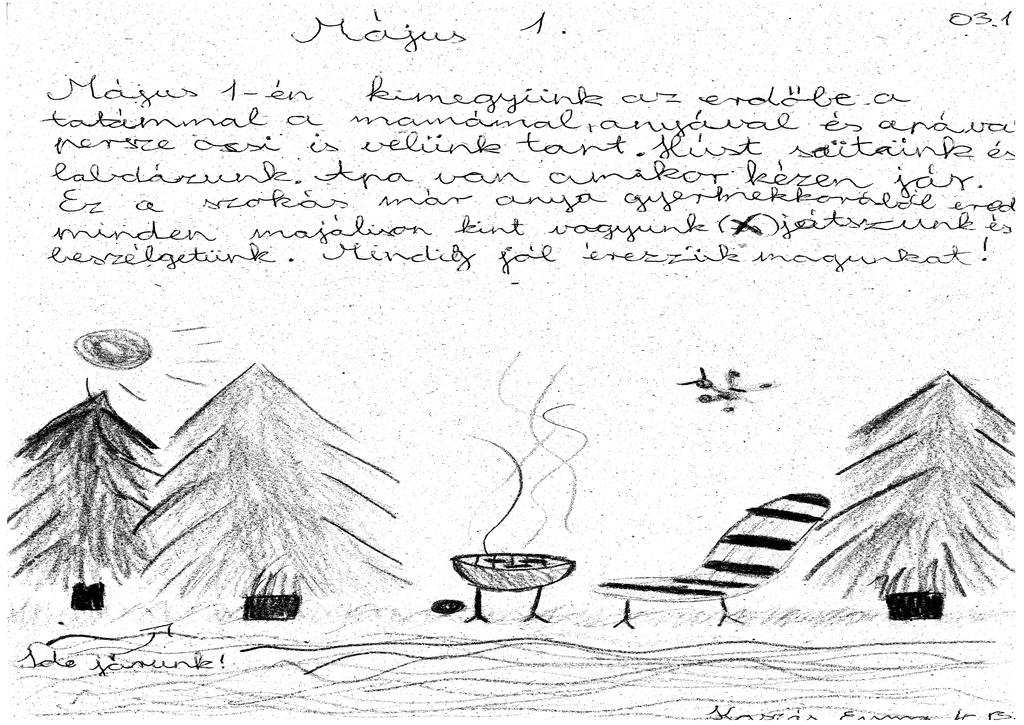 03.1
Május 1.
Május 1-én kimegyünk az erdőbe a
tatámmal a mamámal, anyával és apáva
persze öcsi is velünk tart. Húst sütünk és
labdázunk. Apa van amikor kézen jár.
Ez a szokás már anya gyermekkorából ered
minden majálison kint vagyunk (x) játszunk és
beszélgetünk. Mindig jól érezzük magunkat!
Ide járunk!
Emma 4. B